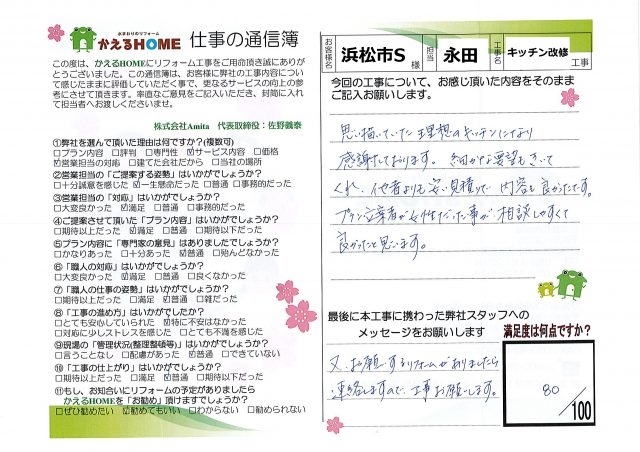 水まわりのリフォーム
かえるHOME 仕事の通信簿
この度は、かえるHOMEにリフォーム工事をご用命頂き誠にありが
とうございました。この通信簿は、お客様に弊社の工事内容につい
て感じたままに評価していただく事で、更なるサービスの向上の参
考にさせて頂きます。率直なご意見をご記入いただき、封筒に入れ
て担当者へお渡しくださいませ。
株式会社Amita 代表取締役：佐野義泰
①弊社を選んで頂いた理由は何ですか?(複数可)
□プラン内容 □評判 □専門性 ☑サービス内容 □価格
☑営業担当の対応 □建てた会社だから □当社の場所
②営業担当の「ご提案する姿勢」はいかがでしょうか?
□十分誠意を感じた ☑一生懸命だった □普通 □事務的だった
③営業担当の「対応」はいかがでしょうか?
□大変良かった ☑満足 □普通 □事務的だった
④ご提案させて頂いた「プラン内容」はいかがでしょうか?
□期待以上だった ☑満足 □普通 □期待以下だった
⑤プラン内容に「専門家の意見」はありましたでしょうか?
□かなりあった □十分あった ☑普通 □殆んどなかった
⑥「職人の対応」はいかがでしょうか?
□大変良かった ☑満足 □普通 □良くなかった
⑦「職人の仕事の姿勢」はいかがでしょうか?
□期待以上だった □満足 ☑普通 □雑だった
⑧「工事の進め方」はいかがでしたか?
□とても安心していられた ☑特に不安はなかった
□対応に少しストレスを感じた □とても不満を感じた
⑨現場の「管理状況(整理整頓等)」はいかがでしょうか?
□言うことなし □配慮があった ☑普通 □できていない
⑩「工事の仕上がり」はいかがでしょうか?
□期待以上だった □満足 ☑普通 □期待以下だった
⑪もし、お知合いにリフォームの予定がありましたら
かえるHOMEを「お勧め」頂けますでしょうか?
□ぜひ勧めたい ☑勧めてもいい □わからない □勧められない
お客様名 浜松市S 様 担当 永田 工事名 キッチン改修 工事
今回の工事について、お感じ頂いた内容をそのまま
ご記入お願いします。
思い描いていた理想のキッチンになり
感謝しております。細かな要望もきいて
くれ、他者よりも安い見積りで内容も良かったです。
プラン立案者が女性だった事が相談しやすくて
良かったと思います。
最後に本工事に携わった弊社スタッフへの
メッセージをお願いします
満足度は何点ですか?
又、お願いするリフォームがありましたら
連絡しますので、工事お願いします。
80
/100